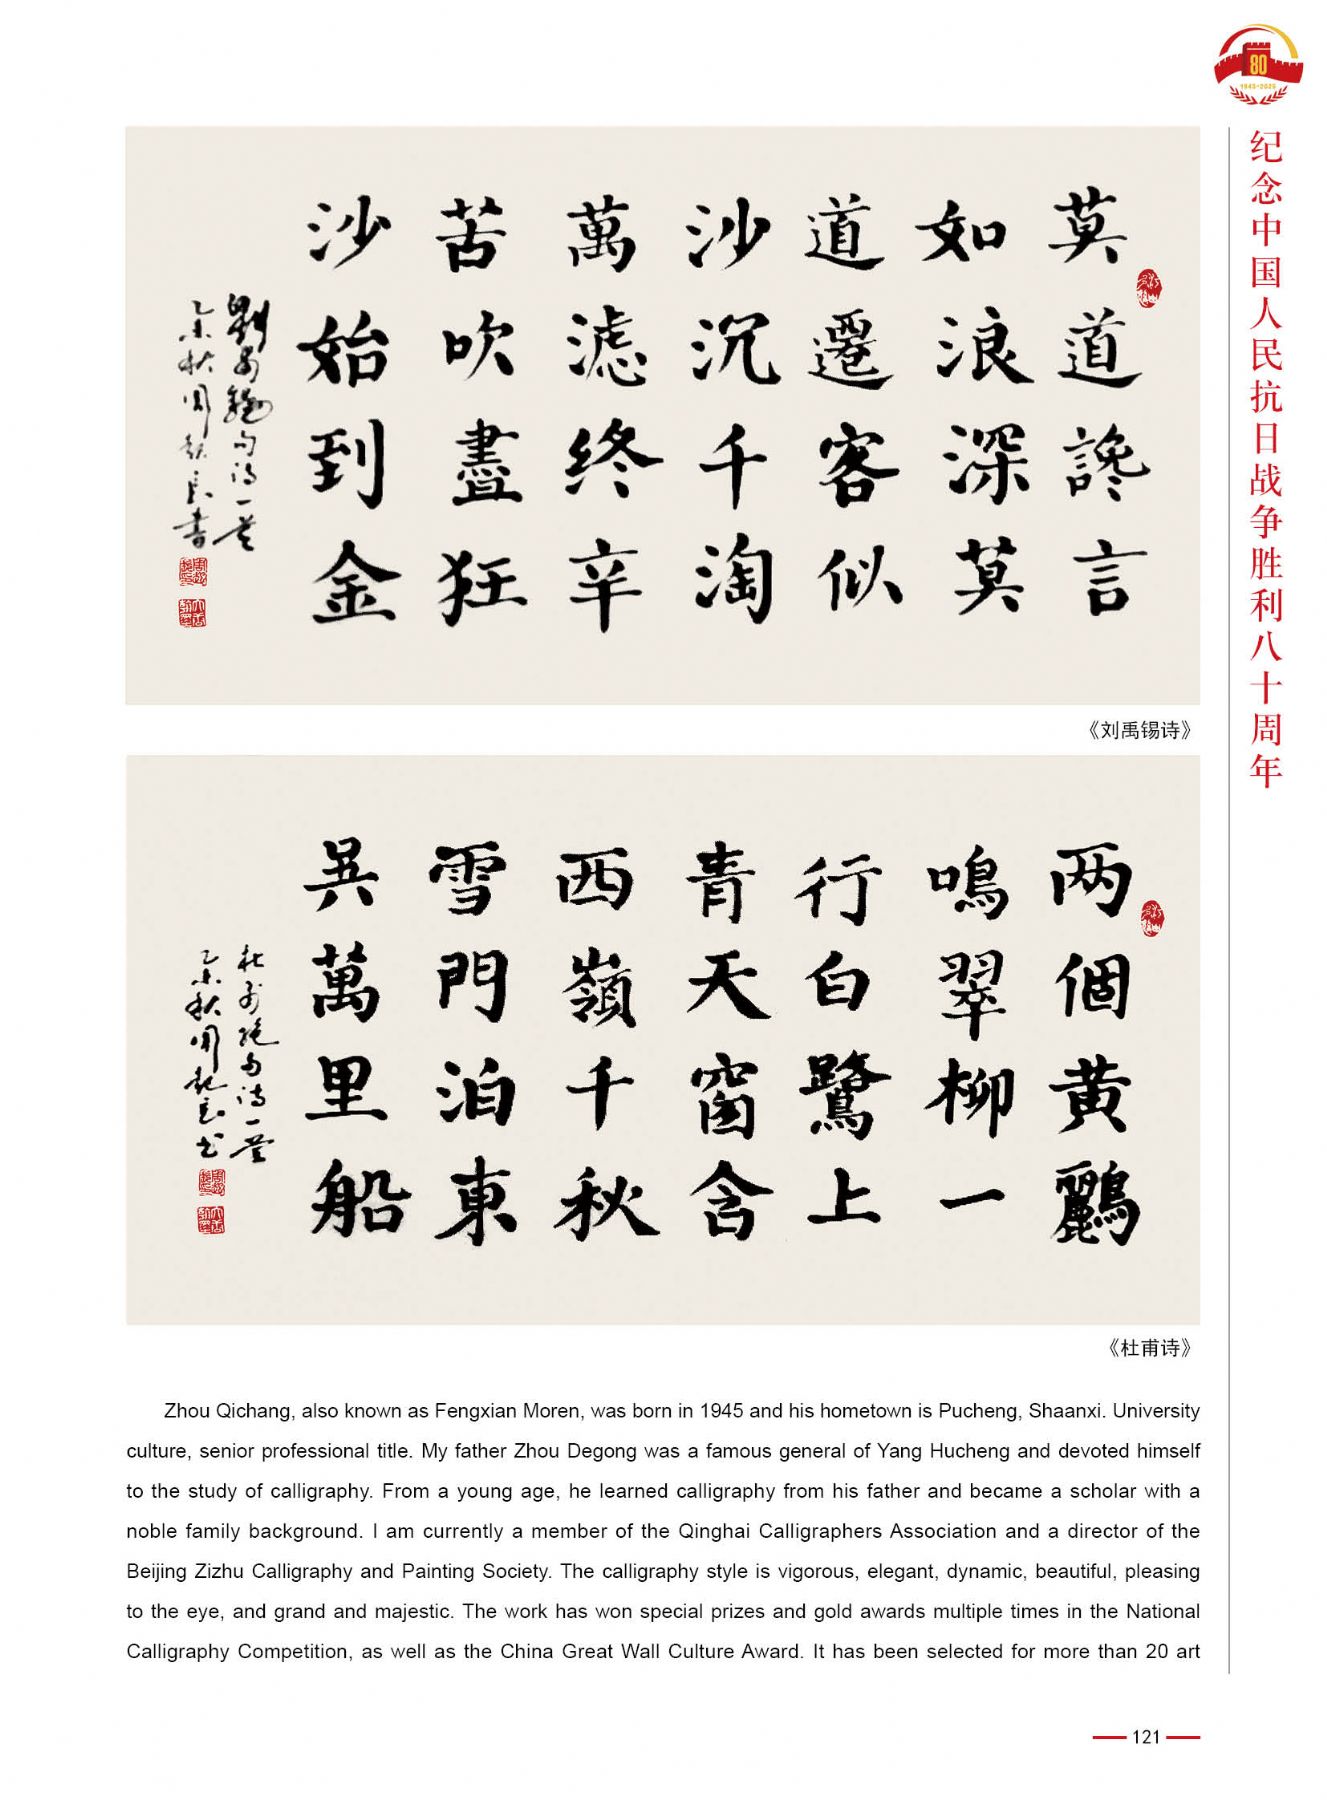 80
1945-2025
纪念中国人民抗日战争胜利八十周年
莫道谗言
如浪深莫
道遷客似
沙沉千淘
萬滤终辛
苦吹盡狂
沙始到金
劉禹錫句诗一首
乙未秋周啟長書
《刘禹锡诗》
两個黄鸝
鳴翠柳一
行白鷺上
青天窗含
西嶺千秋
雪門泊東
吴萬里船
杜甫绝句诗一首
乙未秋周啟长书
《杜甫诗》
Zhou Qichang, also known as Fengxian Moren, was born in 1945 and his hometown is Pucheng, Shaanxi. University
culture, senior professional title. My father Zhou Degong was a famous general of Yang Hucheng and devoted himself
to the study of calligraphy. From a young age, he learned calligraphy from his father and became a scholar with a
noble family background. I am currently a member of the Qinghai Calligraphers Association and a director of the
Beijing Zizhu Calligraphy and Painting Society. The calligraphy style is vigorous, elegant, dynamic, beautiful, pleasing
to the eye, and grand and majestic. The work has won special prizes and gold awards multiple times in the National
Calligraphy Competition, as well as the China Great Wall Culture Award. It has been selected for more than 20 art
121